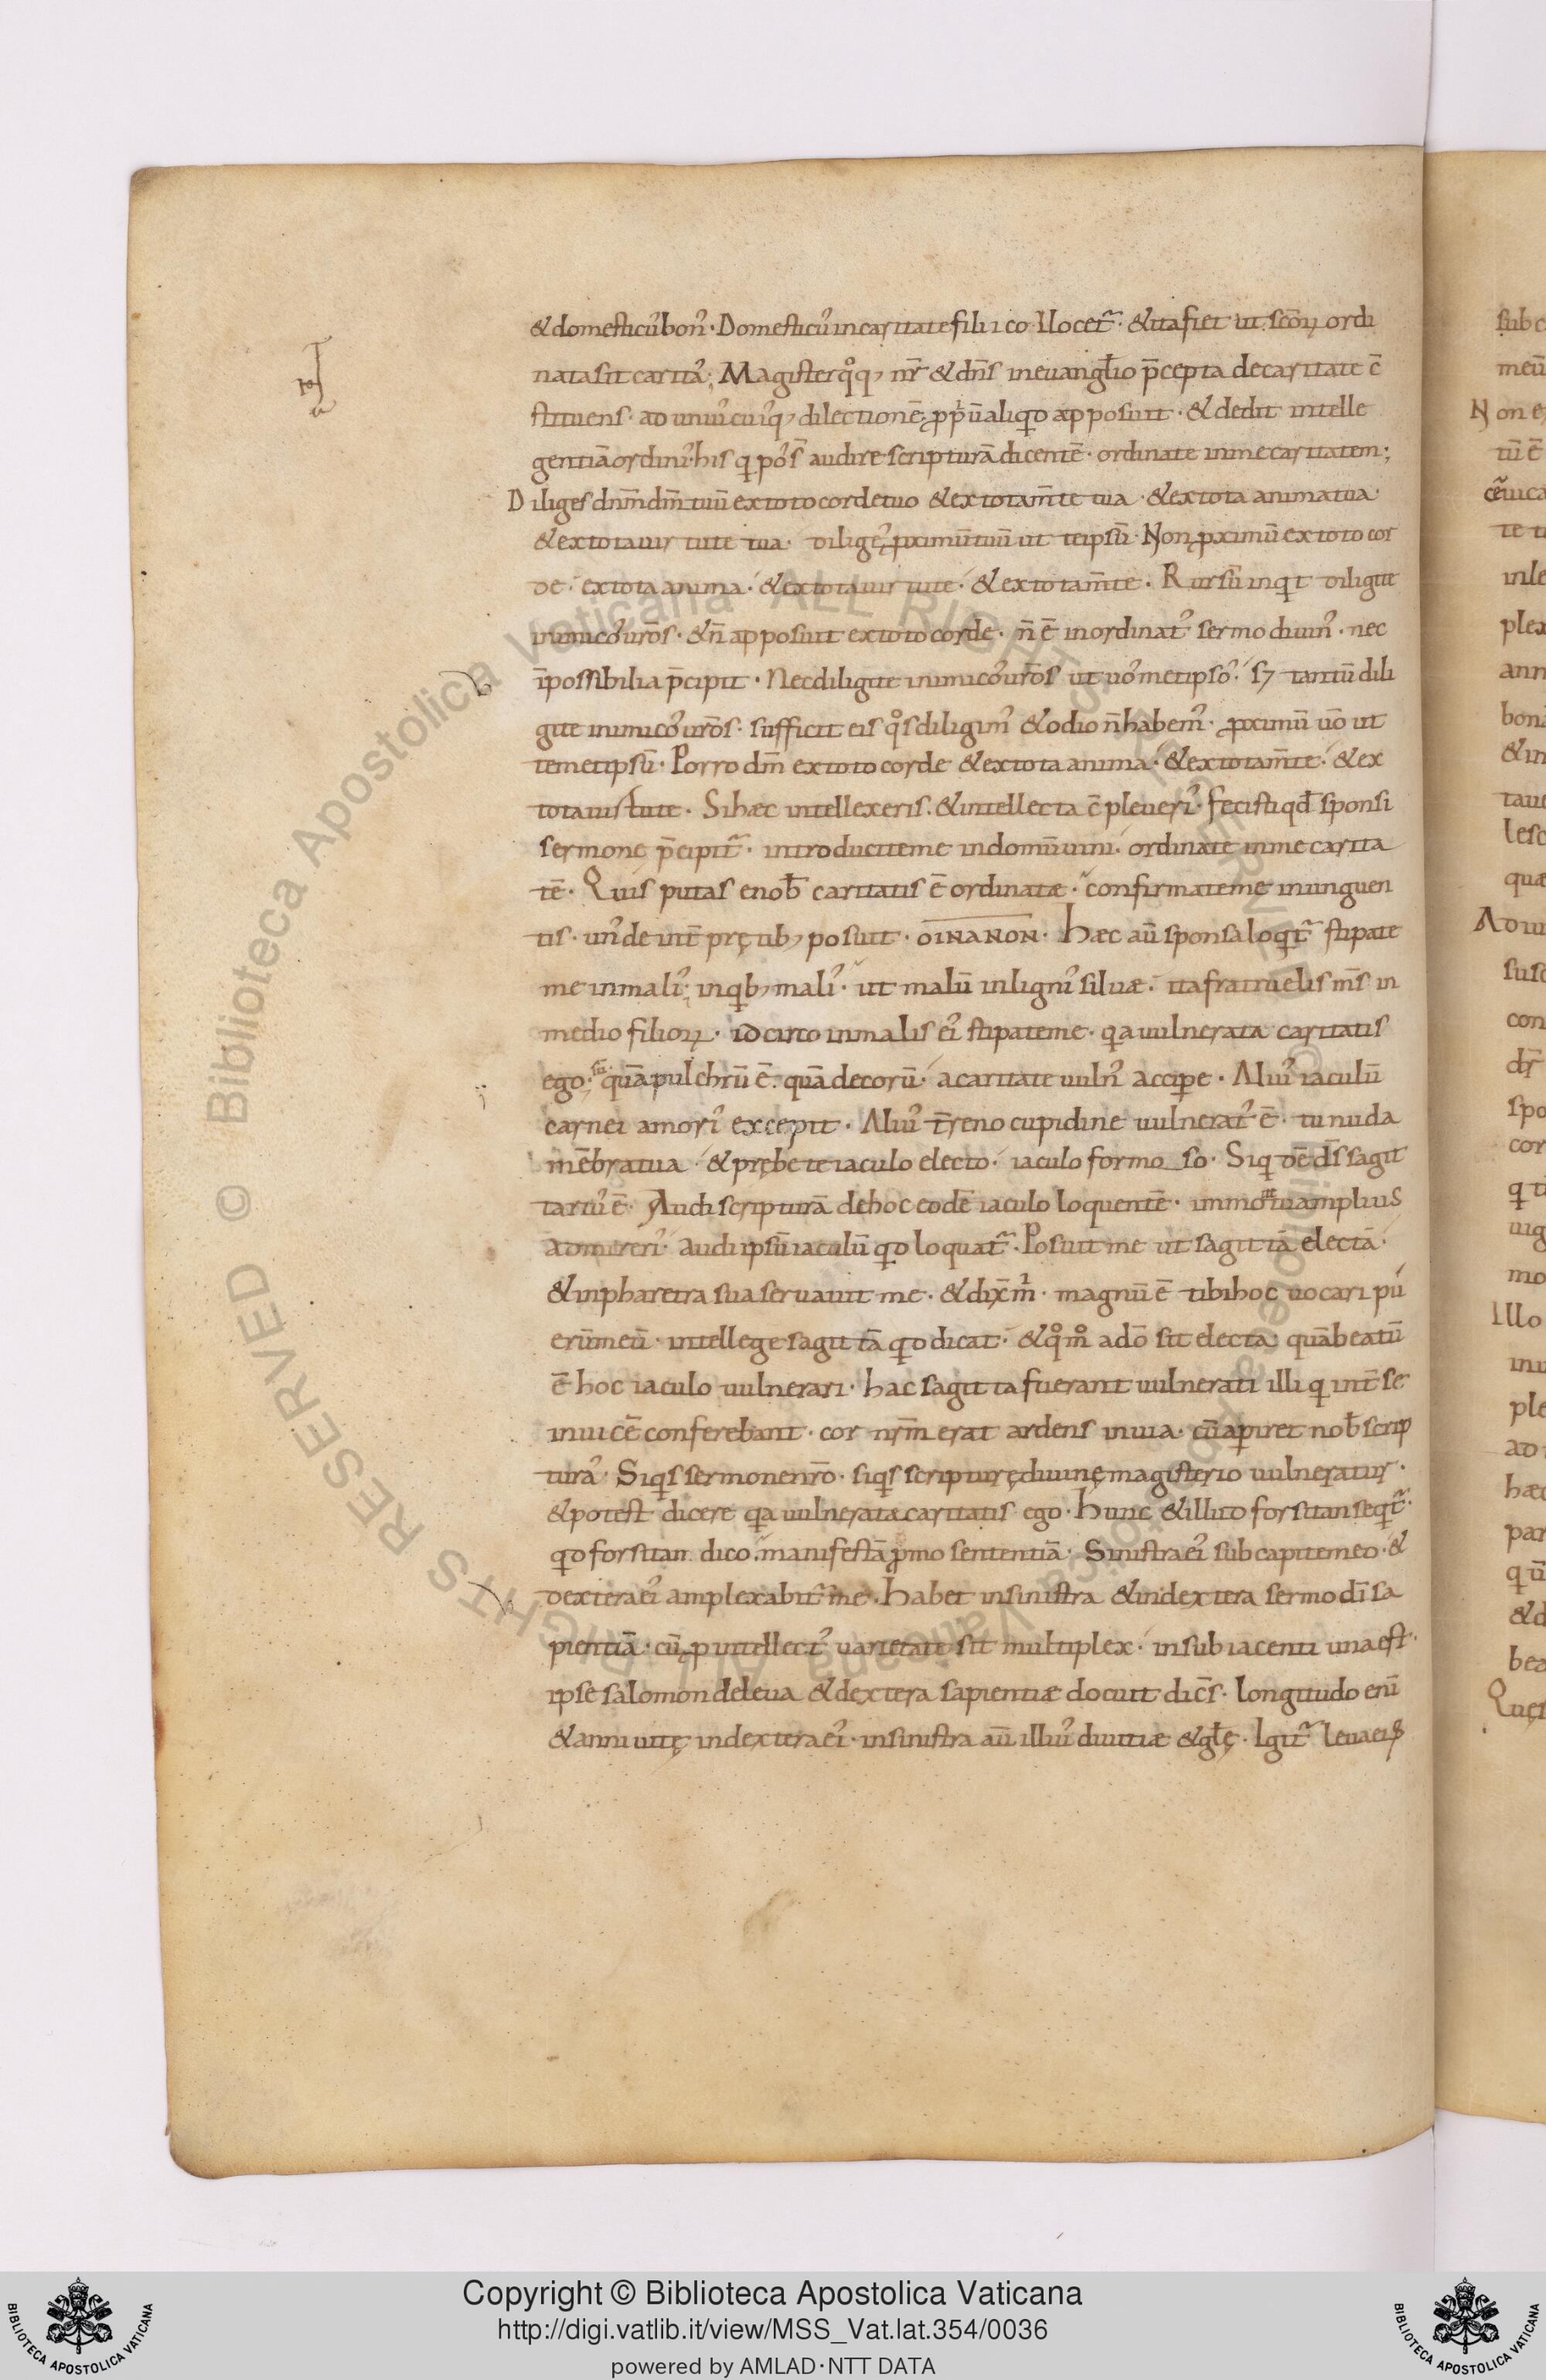 & domesticu᷒ bon᷒· Domesticu᷒ in caritate filii collocet᷑· & ita fiet ut sc̄doꝝ ordi
nata sit carita᷒; Magister qͦq, nr̄ & dn̄s in euangl̄io p̄cepta de caritate c̄
stituens· ad uniu᷒cuiu᷒q, dilectionē ꝓpⁱū aliqd apposuit· & dedit intelle
gentiā ordini᷒ his q pos̄s audire scripturā dicentē· ordinate in me caritatem;
Diliges dn̄m dm̄ tuū ex toto corde tuo & ex tota m̄te tua· & ex tota anima tua·
& ex tota uirtute tua· dilige᷒ ꝓximū tuū ut teipsū· Non ꝓximū ex toto cor
de· ex tota anima· & ex tota uirtute· & ex tota m̄te· Rursū inqt diligite
inimico᷒ uros̄· & n̄ apposuit ex toto corde· n̄ ē inordinat᷒ sermo diuin᷒· nec
īpossibilia p̄cipit· Nec diligite inimico᷒ uros̄ ut uo᷒metipso᷒· s; tantū dili
gite inimico᷒ uros̄· sufficit eis qͦs diligim᷒ & odio n̄ habem᷒· ꝓximū uō ut
temetipsū· Porro dm̄ ex toto corde & ex tota anima· & ex tota m̄te· & ex
tota uirtute· Si haec intellexeris· & intellecta c̄pleueri᷒· fecisti qd̄ sponsi
sermone p̄cipit᷑· introducite me in domū uini· ordinate in me carita
tē· Quis putas e nob̄ caritatis ē ordinatae· confirmate me in unguen
tis· un᷒ de int̄pretib, posuit· ΟΙΝΑΝΟΝ· Haec aū sponsa loqt᷑ stipate
me in mali᷒; in qb, mali᷒· ut malū in ligni᷒ siluae· ita fratruelis ms̄ in
medio filioꝝ· idcirco in malis ei᷒ stipate me· qa uulnerata caritatis
ego· sū quā pulchrū ē· quā decorū· a caritate uuln᷒ accipe· Aliu᷒ iaculū
carnei amori᷒ excepit· Aliu᷒ t̄reno cupidine uulnerat᷒ ē· tu nuda
mēbra tua· & prębe te iaculo electo· iaculo formoso· Siqdē ds̄ sagit
tariu᷒ ē· Audi scripturā de hoc eodē iaculo loquentē· immo ut amplius
admireri᷒· audi ipsū iaculū qd loquat᷑· Posuit me ut sagittā electā·
& in pharetra sua seruauit me· & dix̄ mⁱ· magnū ē tibi hoc uocari pu
erū meū· intellege sagittā qd dicat· & qͦmͦ a dō sit electa; quā beatū
ē hoc iaculo uulnerari· hac sagitta fuerant uulnerati illi q int̄ se
inuicē conferebant· cor nrm̄ erat ardens in uia· cū apiret nob̄ scrip
tura᷒· Siqs sermone nrō· siqs scripturę diuinę magisterio uulneratur·
& potest dicere qa uulnerata caritatis ego· Hunc & illud forsitan seqt᷑·
qd forsitan dico· manifestā ꝓmo sententiā· Sinistra ei᷒ sub capite meo· &
dextera ei᷒ amplexabit᷑ me· Habet in sinistra & in dextera sermo dī sa
pientiā· cū p intellect᷒ uarietate sit multiplex· in subiacenti una est·
ipse salomon de leua & dextera sapientiae docuit dic̄s· longitudo enī
& anni uitę in dextera ei᷒· in sinistra aū illiu᷒ diuitiae & gl̄ę· Igit᷑ leua ei᷒
Copyright © Biblioteca Apostolica Vaticana
http://digi.vatlib.it/view/MSS_Vat.lat.354/0036
powered by AMLAD·NTT DATA